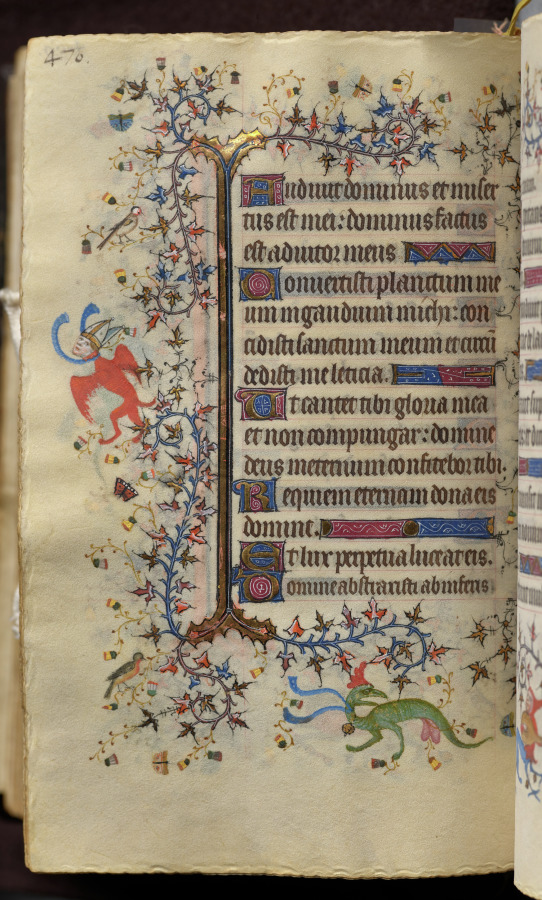 470.
Audiuit dominus et miser
tus est mei: dominus factus
est adiutor meus
Conuertisti planctum me
um in gaudium michi: con
cidisti sanctum meum et cicū
dedisti me leticia.
Ut cantet tibi gloria mea
et non compungar: domine
deus meus in eternum confitebor tibi.
Requiem eternam dona eis
domine.
Et lux perpetua luceat eis.
Domine abstraxisti ab inferis